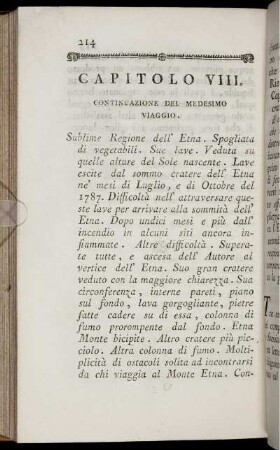 214
CAPITOLO VIII.
CONTINUAZIONE DEL MEDESIMO
VIAGGIO.
Sublime Regione dell' Etna. Spogliata
di vegetabili. Sue lave. Veduta su
quelle alture del Sole nascente. Lave
escite dal sommo cratere dell' Etna
ne' mesi di Luglio, e di Ottobre del
1787. Difficoltà nell' attraversare que-
ste lave per arrivare alla sommità dell'
Etna. Dopo undici mesi e più dall' in-
cendio in alcuni siti ancora in-
fiammate. Altre difficoltà. Supera-
te tutte, e ascesa dell' Autore al
vertice dell' Etna. Suo gran cratere
veduto con la maggiore chiarezza. Sua
circonferenza, interne pareti, piano
sul fondo, lava gorgogliante, pietre
fatte cadere su di essa, colonna di
fumo prorompente dal fondo. Etna
Monte bicipite. Altro cratere più pic-
ciolo. Altra colonna di fumo. Molti-
plicità di ostacoli solita ad incontrarsi
da chi viaggia al Monte Etna. Con-